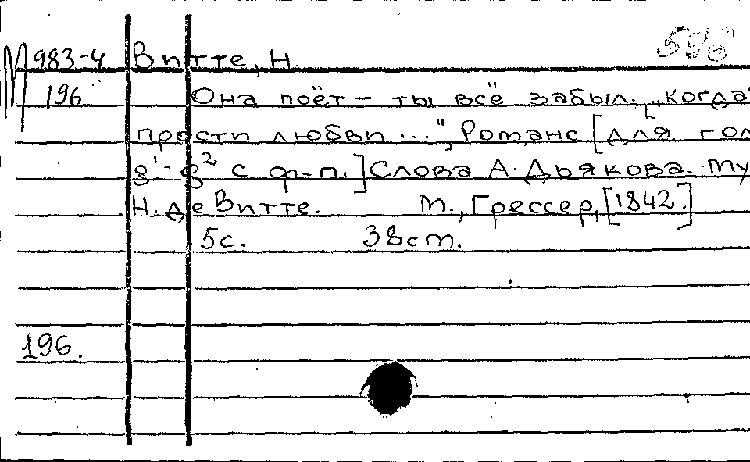 М983-4 Витте, Н
196. Она поёт – ты всё забыл. „Когда
прости любви...", Романс [для гол
g¹-g² с ф-п.] Слова А. Дьякова. Му
Н. де Витте. М., Грессер, [1842.]
5с. 38см.
196.